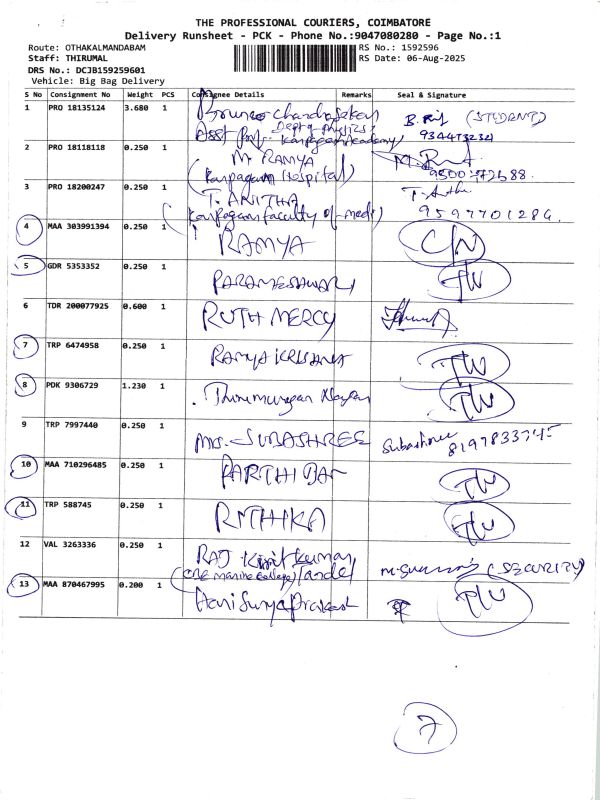 THE PROFESSIONAL COURIERS, COIMBATORE
Delivery Runsheet - PCK - Phone No.:9047080280 - Page No.:1
Route: OTHAKALMANDABAM RS No.: 1592596
Staff: THIRUMAL RS Date: 06-Aug-2025
DRS No.: DCJB159259601
Vehicle: Big Bag Delivery
S No Consignment No Weight PCS Consignee Details Remarks Seal & Signature
1 PRO 18135124 3.680 1 (STUDENT)
Asst Prof. Dept of physics,
Karpagam Academy
2 PRO 18118118 0.250 1 M. RAMYA
(Karpagam Hospital)
3 PRO 18200247 0.250 1 T. ANITHA
(Karpagam faculty of medi) 9597701286.
4 MAA 303991394 0.250 1 RAMYA
5 GDR 5353352 0.250 1 PARAMESHWARI
6 TDR 200077925 0.600 1 RUTH MERCY
7 TRP 6474958 0.250 1 RAMYA KRISHNA
8 PDK 9306729 1.230 1 Thirumurugan
9 TRP 7997440 0.250 1 Mrs. SUBASHREE Subashree
10 MAA 710296485 0.250 1 PARTHIBAN
11 TRP 588745 0.250 1 RITHIKA
12 VAL 3263336 0.250 1 RAJ Kirit kumar (SECURITY)
Tandel
13 MAA 870467995 0.200 1 Hari Surya prakash
7